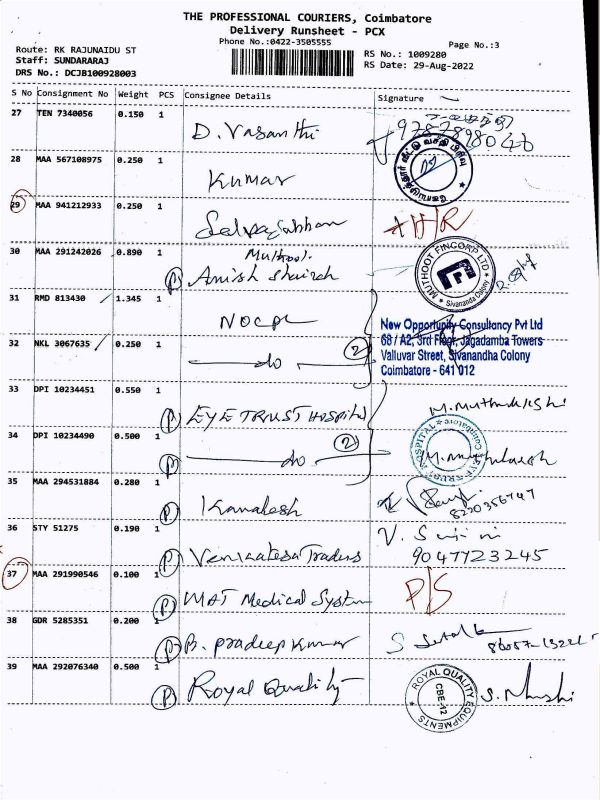 THE PROFESSIONAL COURIERS, Coimbatore
Delivery Runsheet - PCX
Phone No.:0422-3505555
Page No.:3
Route: RK RAJUNAIDU ST
Staff: SUNDARARAJ
DRS No.: DCJB100928003
RS No.: 1009280
RS Date: 29-Aug-2022
S No Consignment No Weight PCS Consignee Details Signature
27 TEN 7340056 0.150 1 D. Vasanthi 9787898046
28 MAA 567108975 0.250 1 Kumar
29 MAA 941212933 0.250 1
30 MAA 291242026 0.890 1 Muthoot.
(P) Amish
MUTHOOT FINCORP LTD
Sivananda Colony
31 RMD 813430 1.345 1 NOCPL
New Opportunity Consultancy Pvt Ltd
68 / A2, 3rd Floor, Jagadamba Towers
Valluvar Street, Sivanandha Colony
Coimbatore - 641 012
32 NKL 3067635 0.250 1 do (2)
33 DPI 10234451 0.550 1 (P) EYE TRUST HOSPITAL
34 DPI 10234490 0.500 1 (P) do (2)
35 MAA 294531884 0.280 1 (P) Kamalesh 8220356747
36 STY 51275 0.190 1 (P) Venkatesa Traders 9047723245
37 MAA 291990546 0.100 1 (P) MAT Medical System P/S
38 GDR 5285351 0.200 1 (P) B. Pradeep Kumar
39 MAA 292076340 0.500 1 (P) Royal Quality
ROYAL QUALITY EQUIPMENTS
CBE-12